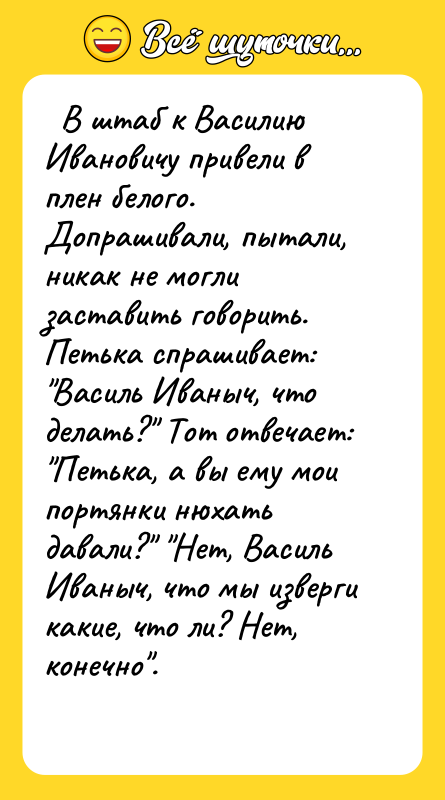 Всё шуточки...
В штаб к Василию
Ивановичу привели в
плен белого.
Допрашивали, пытали,
никак не могли
заставить говорить.
Петька спрашивает:
"Василь Иваныч, что
делать?" Тот отвечает:
"Петька, а вы ему мои
портянки нюхать
давали?" "Нет, Василь
Иваныч, что мы изверги
какие, что ли? Нет,
конечно".